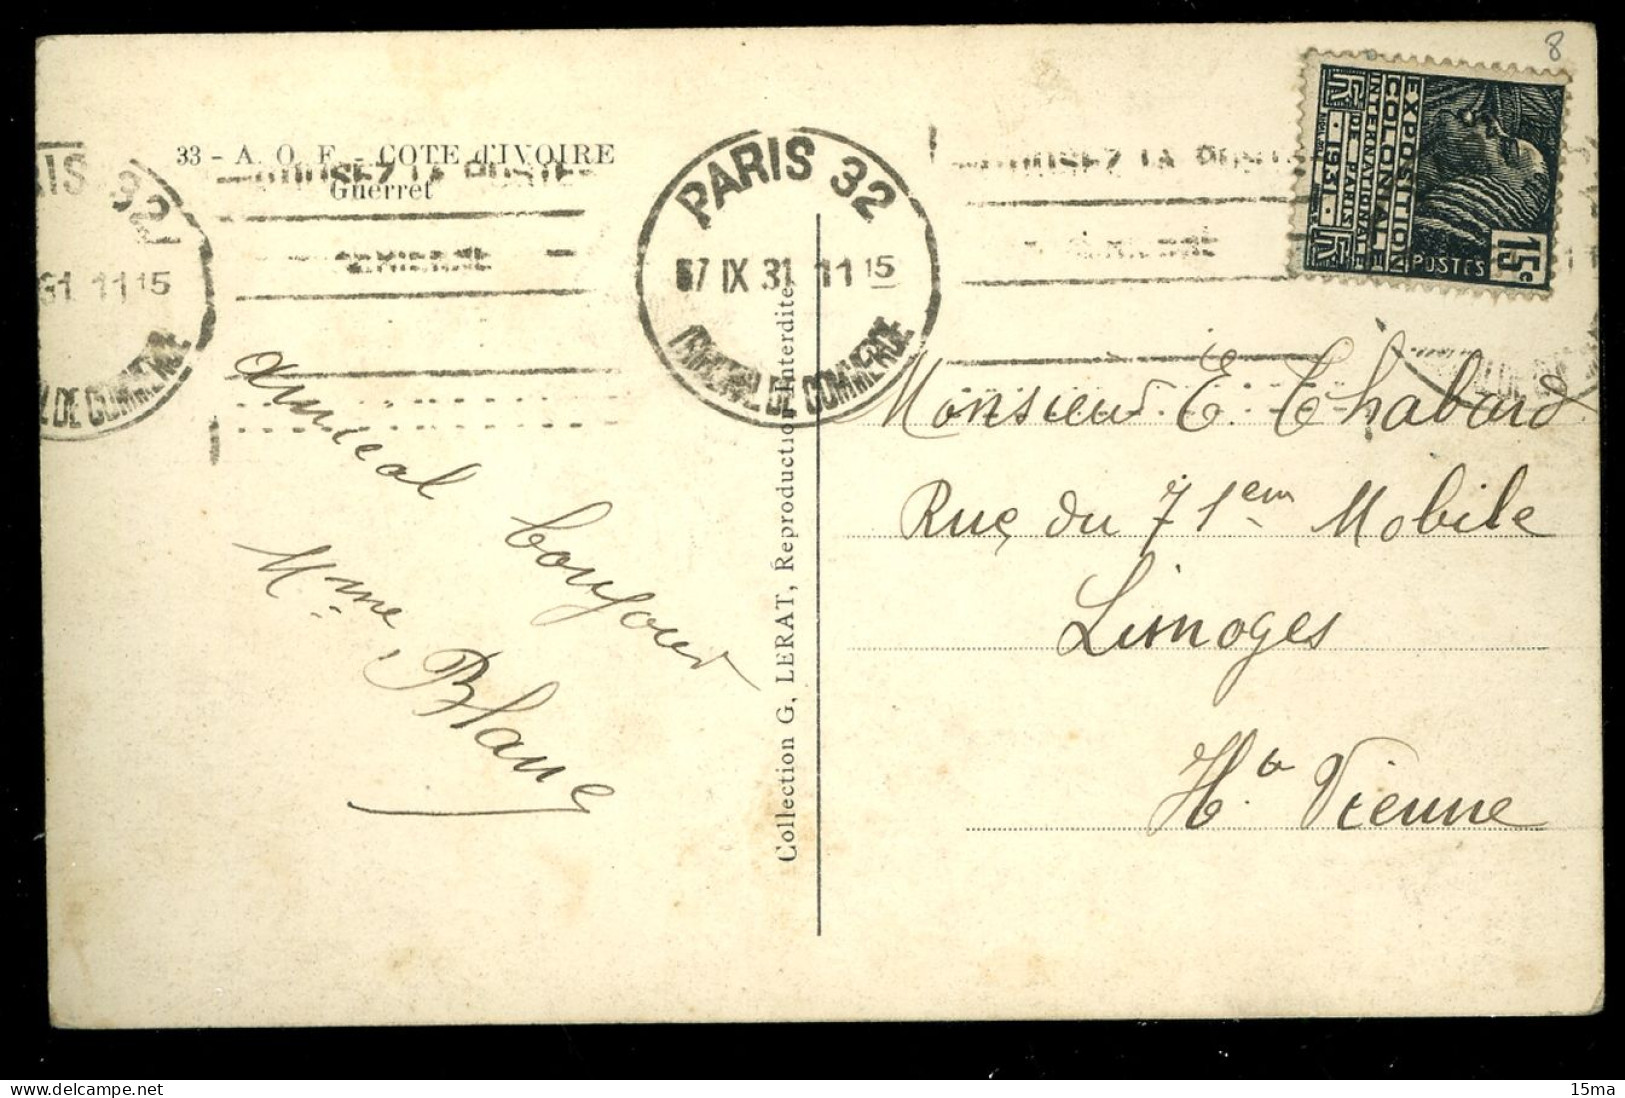 8
33 - A. O. F. - COTE d'IVOIRE
Guerret
UTILISEZ LA POSTE
AERIENNE
PARIS 32
7 IX 31 11 15
TRIBUNAL DE COMMERCE
IS 32
31 11 15
L DE COMMERCE
EXPOSITION
COLONIALE
INTERNATIONALE
DE PARIS
· 1931 ·
POSTES
15c
amical bonjour
Mme Blanc
Collection G. LERAT, Reproduction Interdite.
Monsieur E. Chabard
Rue du 71em Mobile
Limoges
Hte Vienne
15ma